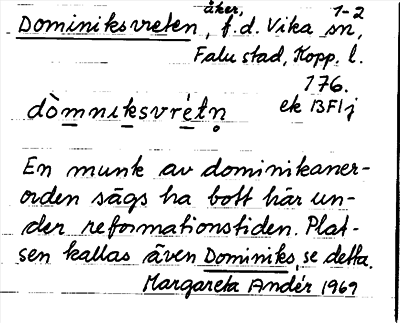 åker, 1-2
Dominiksvreten, f.d. Vika sn,
Falu stad, Kopp. l.
176.
dòmniksvrétn̥ ek 13F1j
En munk av dominikaner-
orden sägs ha bott här un-
der reformationstiden. Plat-
sen kallas även Dominiks, se detta.
Margareta Andér 1969